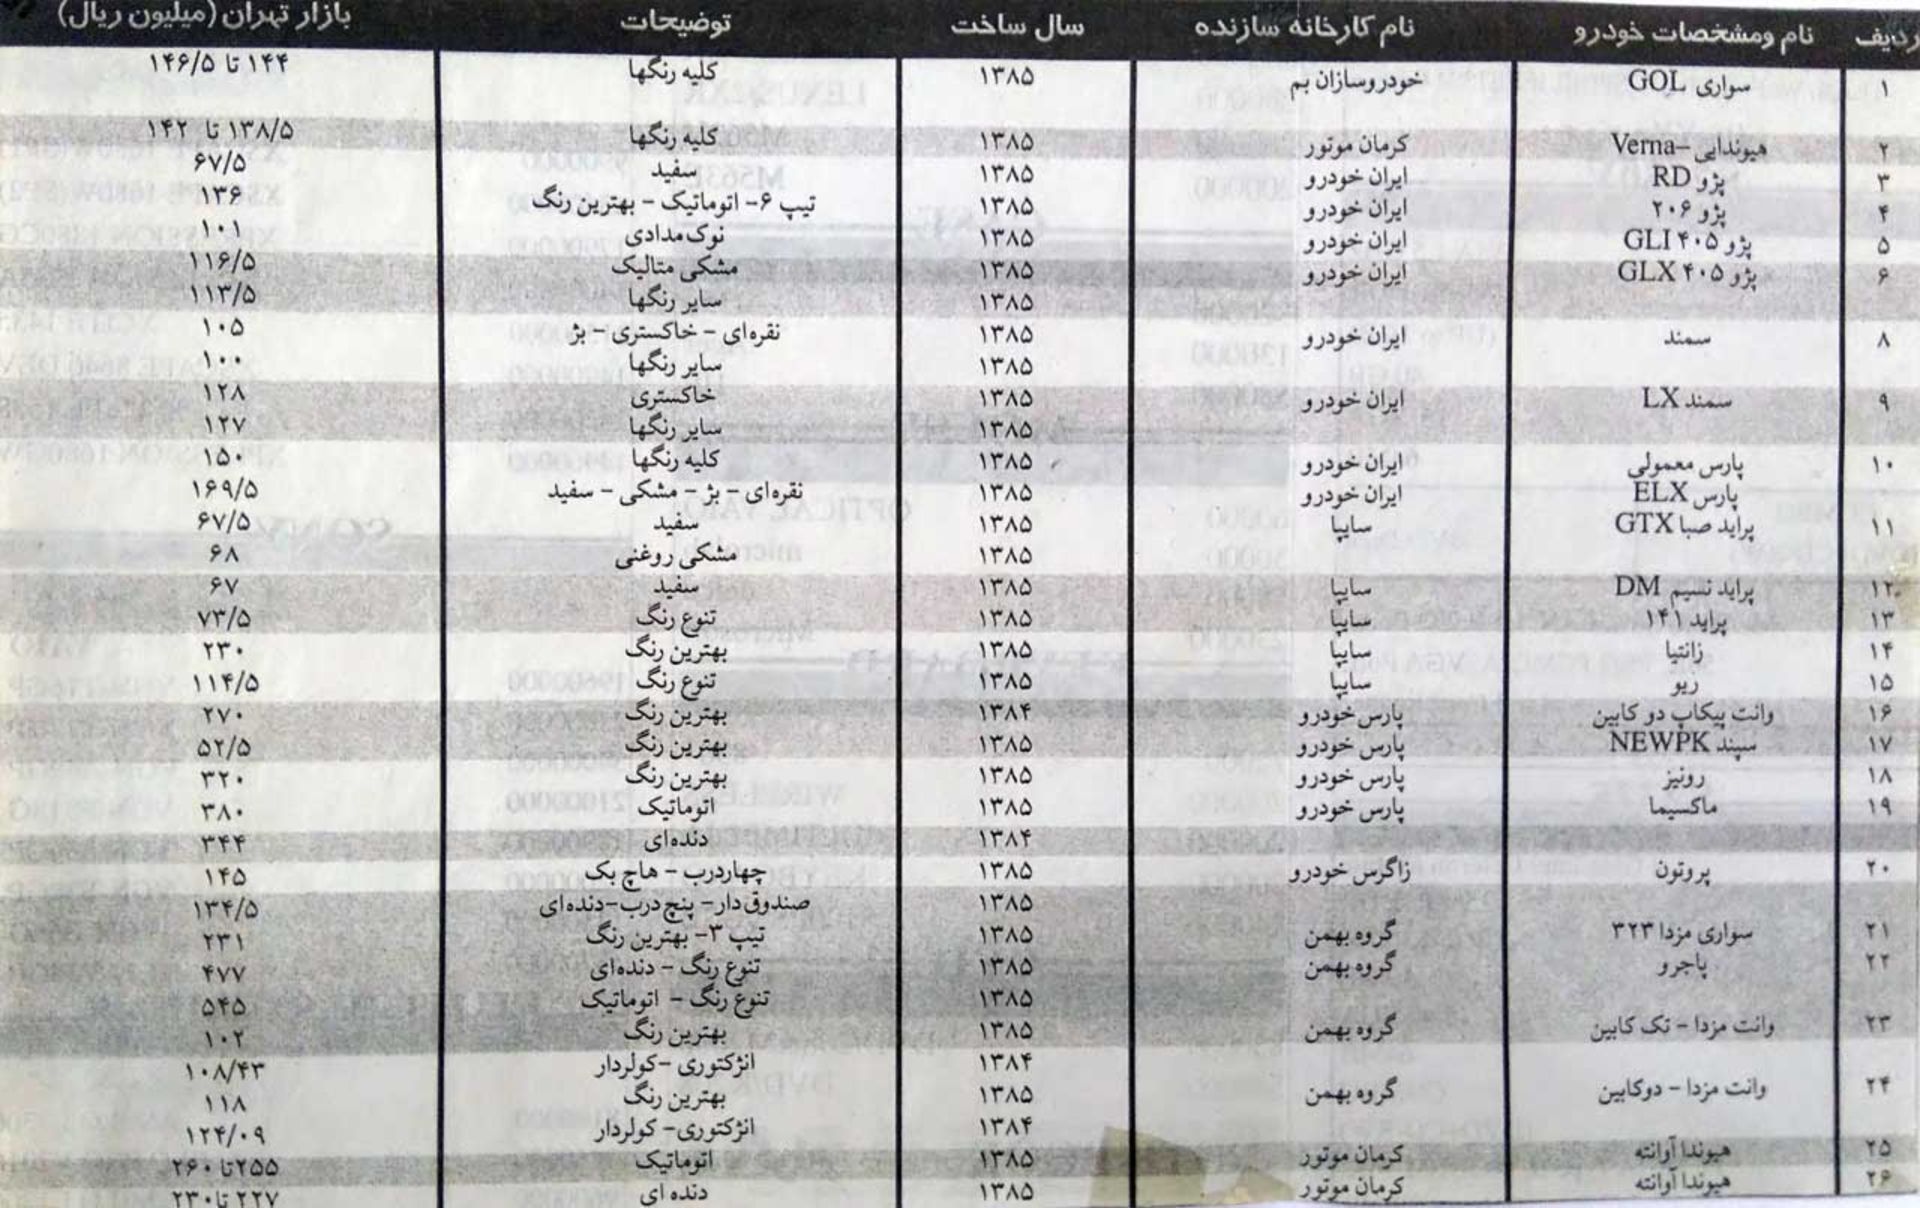 ردیف نام ومشخصات خودرو نام کارخانه سازنده سال ساخت توضیحات بازار تهران (میلیون ریال)
۱ سواری GOL خودروسازان بم ۱۳۸۵ کلیه رنگها ۱۴۴ تا ۱۴۶/۵
۲ هیوندایی -Verna کرمان موتور ۱۳۸۵ کلیه رنگها ۱۳۸/۵ تا ۱۴۲
۳ پژو RD ایران خودرو ۱۳۸۵ سفید ۶۷/۵
۴ پژو ۲۰۶ ایران خودرو ۱۳۸۵ تیپ ۶- اتوماتیک - بهترین رنگ ۱۳۶
۵ پژو ۴۰۵ GLI ایران خودرو ۱۳۸۵ نوک‌مدادی ۱۰۱
۶ پژو ۴۰۵ GLX ایران خودرو ۱۳۸۵ مشکی متالیک ۱۱۶/۵
۱۳۸۵ سایر رنگها ۱۱۳/۵
۸ سمند ایران خودرو ۱۳۸۵ نقره‌ای - خاکستری - بژ ۱۰۵
۱۳۸۵ سایر رنگها ۱۰۰
۹ سمند LX ایران خودرو ۱۳۸۵ خاکستری ۱۲۸
۱۳۸۵ سایر رنگها ۱۲۷
۱۰ پارس معمولی ایران خودرو ۱۳۸۵ کلیه رنگها ۱۵۰
پارس ELX ایران خودرو ۱۳۸۵ نقره‌ای - بژ - مشکی - سفید ۱۶۹/۵
۱۱ پراید صبا GTX سایپا ۱۳۸۵ سفید ۶۷/۵
۱۳۸۵ مشکی روغنی ۶۸
۱۲ پراید نسیم DM سایپا ۱۳۸۵ سفید ۶۷
۱۳ پراید ۱۴۱ سایپا ۱۳۸۵ تنوع رنگ ۷۳/۵
۱۴ زانتیا سایپا ۱۳۸۵ بهترین رنگ ۲۳۰
۱۵ ریو سایپا ۱۳۸۵ تنوع رنگ ۱۱۴/۵
۱۶ وانت پیکاپ دو کابین پارس‌خودرو ۱۳۸۴ بهترین رنگ ۲۷۰
۱۷ سپند NEWPK پارس خودرو ۱۳۸۵ بهترین رنگ ۵۲/۵
۱۸ رونیز پارس خودرو ۱۳۸۵ بهترین رنگ ۳۲۰
۱۹ ماکسیما پارس خودرو ۱۳۸۵ اتوماتیک ۳۸۰
۱۳۸۴ دنده‌ای ۳۴۴
۲۰ پروتون زاگرس خودرو ۱۳۸۵ چهاردرب - هاچ بک ۱۴۵
۱۳۸۵ صندوق‌دار- پنج‌درب-دنده‌ای ۱۳۴/۵
۲۱ سواری مزدا ۳۲۳ گروه بهمن ۱۳۸۵ تیپ ۳- بهترین رنگ ۲۳۱
۲۲ پاجرو گروه بهمن ۱۳۸۵ تنوع رنگ - دنده‌ای ۴۷۷
۱۳۸۵ تنوع رنگ - اتوماتیک ۵۴۵
۲۳ وانت مزدا - تک کابین گروه بهمن ۱۳۸۵ بهترین رنگ ۱۰۲
۱۳۸۴ انژکتوری -کولردار ۱۰۸/۴۳
۲۴ وانت مزدا - دوکابین گروه بهمن ۱۳۸۵ بهترین رنگ ۱۱۸
۱۳۸۴ انژکتوری- کولردار ۱۲۴/۰۹
۲۵ هیوندا آوانته کرمان موتور ۱۳۸۵ اتوماتیک ۲۵۵ تا ۲۶۰
۲۶ هیوندا آوانته کرمان موتور ۱۳۸۵ دنده ای ۲۲۷ تا ۲۳۰